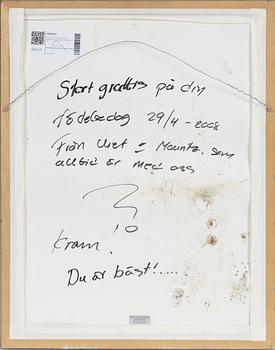 Stort grattis på din
födelsedag 29/4 - 2008
Från
som
alltid är med oss
Kram!
Du är bäst!....